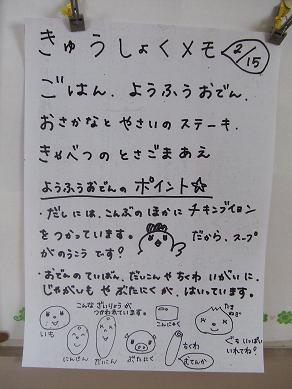 きゅうしょくメモ 2/15
ごはん、ようふうおでん、
おさかなとやさいのステーキ、
きゃべつのとさごまあえ
ようふうおでんの ポイント☆
・だしには、こんぶのほかにチキンブイヨン
をつかっています。 だから、スープ
がのうこうです!
・おでんのていばん、だいこんやちくわ いがいに、
じゃがいもやぶたにくが、はいっています。
こんなざいりょうが
つかわれています。
いも
にんじん
だいこん
ぶたにく
こんにゃく
ちくわ
むてんか
たまねぎ
ぐもいっぱい
いれてね?